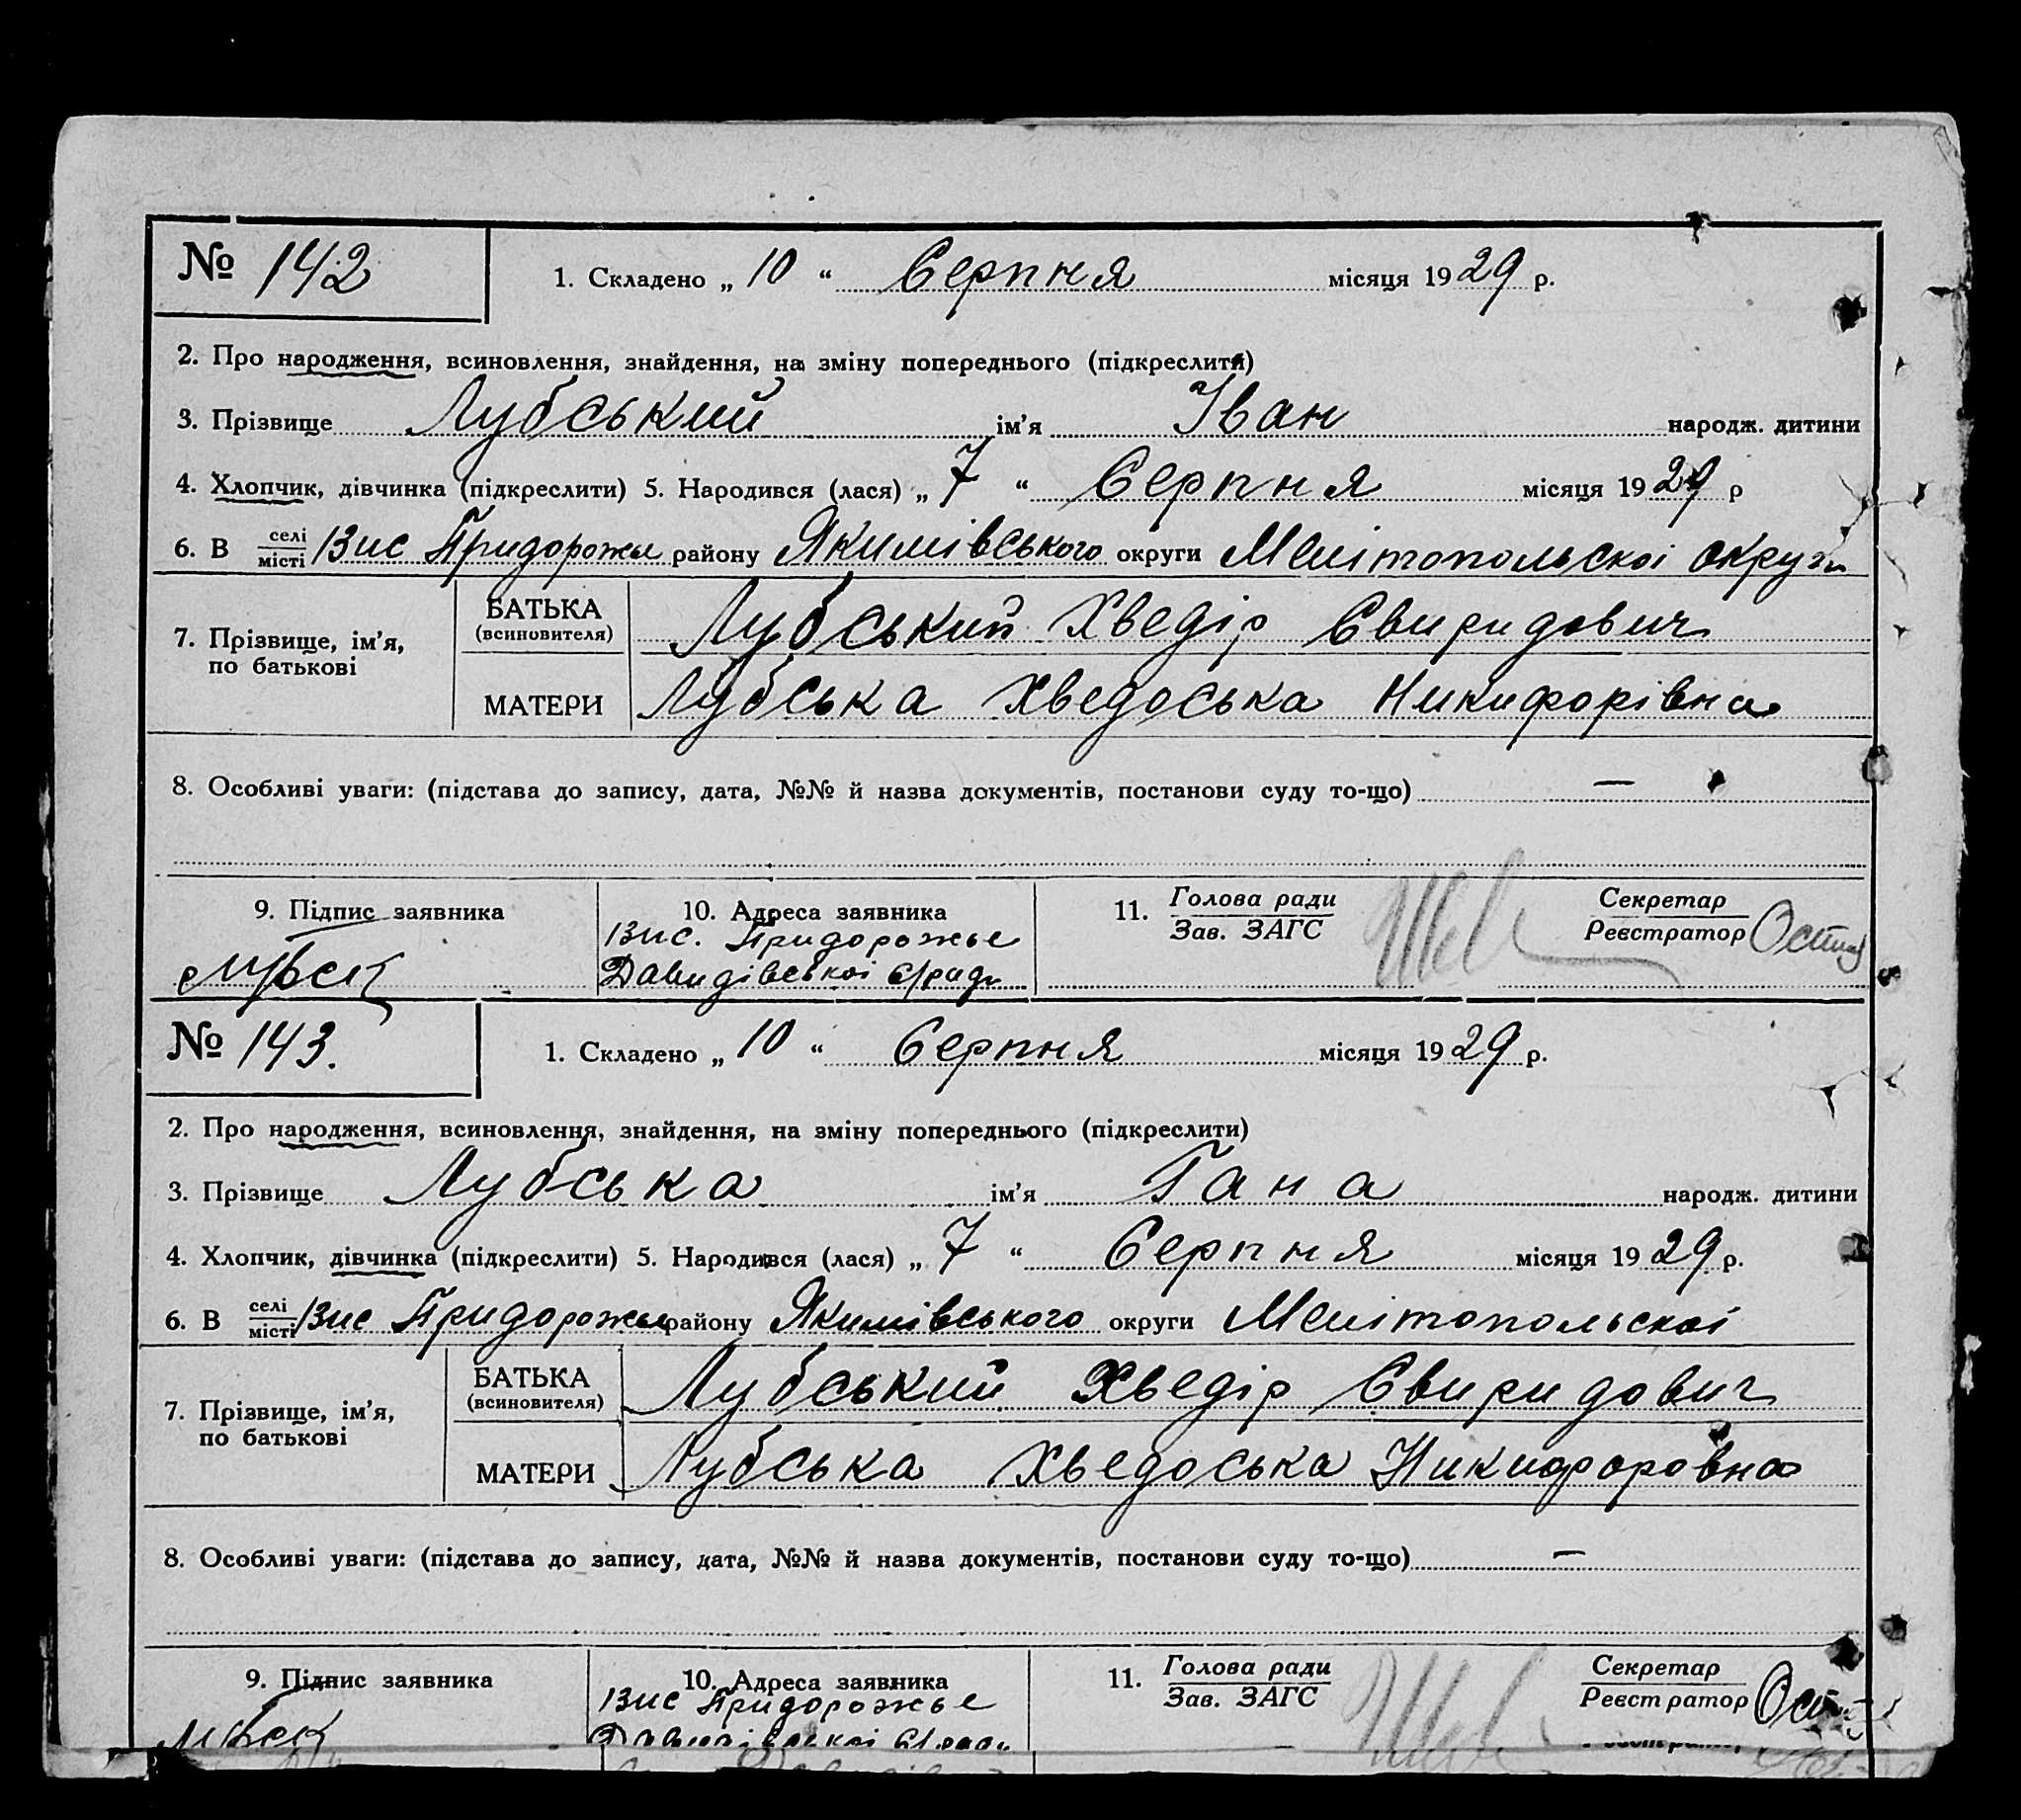 № 142
1. Складено „ 10 “ Серпня місяця 1929 р.
2. Про народження, всиновлення, знайдення, на зміну попереднього (підкреслити)
3. Прізвище Лубський ім’я Іван народж. дитини
4. Хлопчик, дівчинка (підкреслити) 5. Народився (лася) „ 7 “ Серпня місяця 1929 р
6. В селі місті Вис Придорожье району Якимівського округи Мелітопольскої округи
7. Прізвище, ім’я, по батькові
БАТЬКА (всиновителя) Лубський Хведір Свиридович
МАТЕРИ Лубська Хведоська Никифорівна
8. Особливі уваги: (підстава до запису, дата, №№ й назва документів, постанови суду то-що) —
9. Підпис заявника 10. Адреса заявника 11. Голова ради Секретар
Вис. Придорожье Зав. ЗАГС Реєстратор
Давидівської с/ради
№ 143.
1. Складено „ 10 “ Серпня місяця 1929 р.
2. Про народження, всиновлення, знайдення, на зміну попереднього (підкреслити)
3. Прізвище Лубська ім’я Гана народж. дитини
4. Хлопчик, дівчинка (підкреслити) 5. Народився (лася) „ 7 “ Серпня місяця 1929 р.
6. В селі місті Вис Придорожье району Якимівського округи Мелітопольскої
7. Прізвище, ім’я, по батькові
БАТЬКА (всиновителя) Лубський Хведір Свиридович
МАТЕРИ Лубська Хведоська Никифоровна
8. Особливі уваги: (підстава до запису, дата, №№ й назва документів, постанови суду то-що) —
9. Підпис заявника 10. Адреса заявника 11. Голова ради Секретар
Вис Придорожье Зав. ЗАГС Реєстратор
Давидівської с/ради